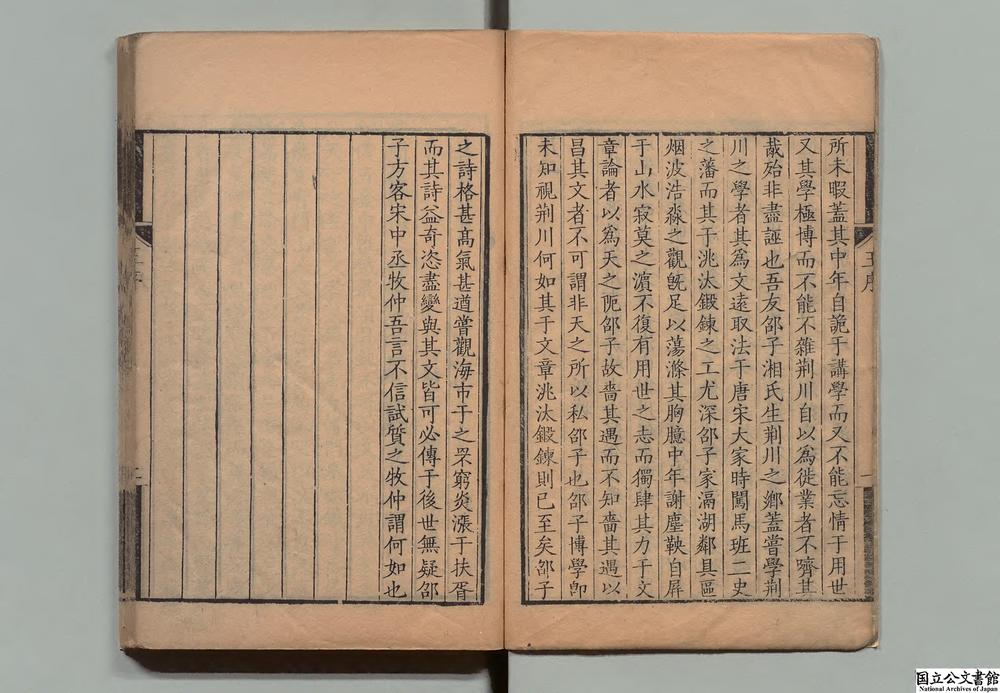 所未暇蓋其中年自詭于講學而又不能忘情于用世
又其學極博而不能不雜荊川自以為徙業者不嚌其
胾殆非盡誣也吾友邵子湘氏生荊川之鄉蓋嘗學荊
川之學者其為文遠取法于唐宋大家時闖馬班二史
之藩而其于洮汰鍛鍊之工尤深邵子家滆湖鄰具區
烟波浩淼之觀旣足以蕩滌其胸臆中年謝塵鞅自屏
于山水寂莫之濵不復有用世之志而獨肆其力于文
章論者以爲天之阨邵子故嗇其遇而不知嗇其遇以
昌其文者不可謂非天之所以私邵子也邵子博學卽
未知視荊川何如其于文章洮汰鍛鍊則已至矣邵子
王序
一
之詩格甚髙氣甚遒嘗觀海市于之罘窮炎漲于扶胥
而其詩益奇恣盡變與其文皆可必傳于後世無疑邵
子方客宋中丞牧仲吾言不信試質之牧仲謂何如也
王序
二
国立公文書館
National Archives of Japan